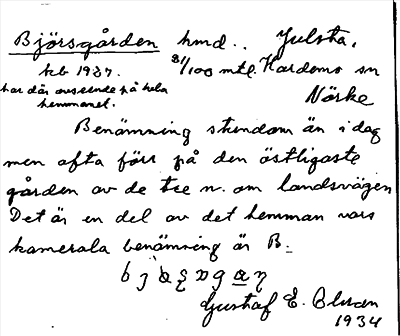 Björsgården hmd.. Julsta,
kb 1937. 31/100 mtl. Hardemo sn
har där avseende på hela
hemmanet. Närke
Benämning stundom än i dag
men ofta förr på den östligaste
gården av de tre n. om landsvägen
Det är en del av det hemman vars
kamerala benämning är B.
Gustaf E.
1934